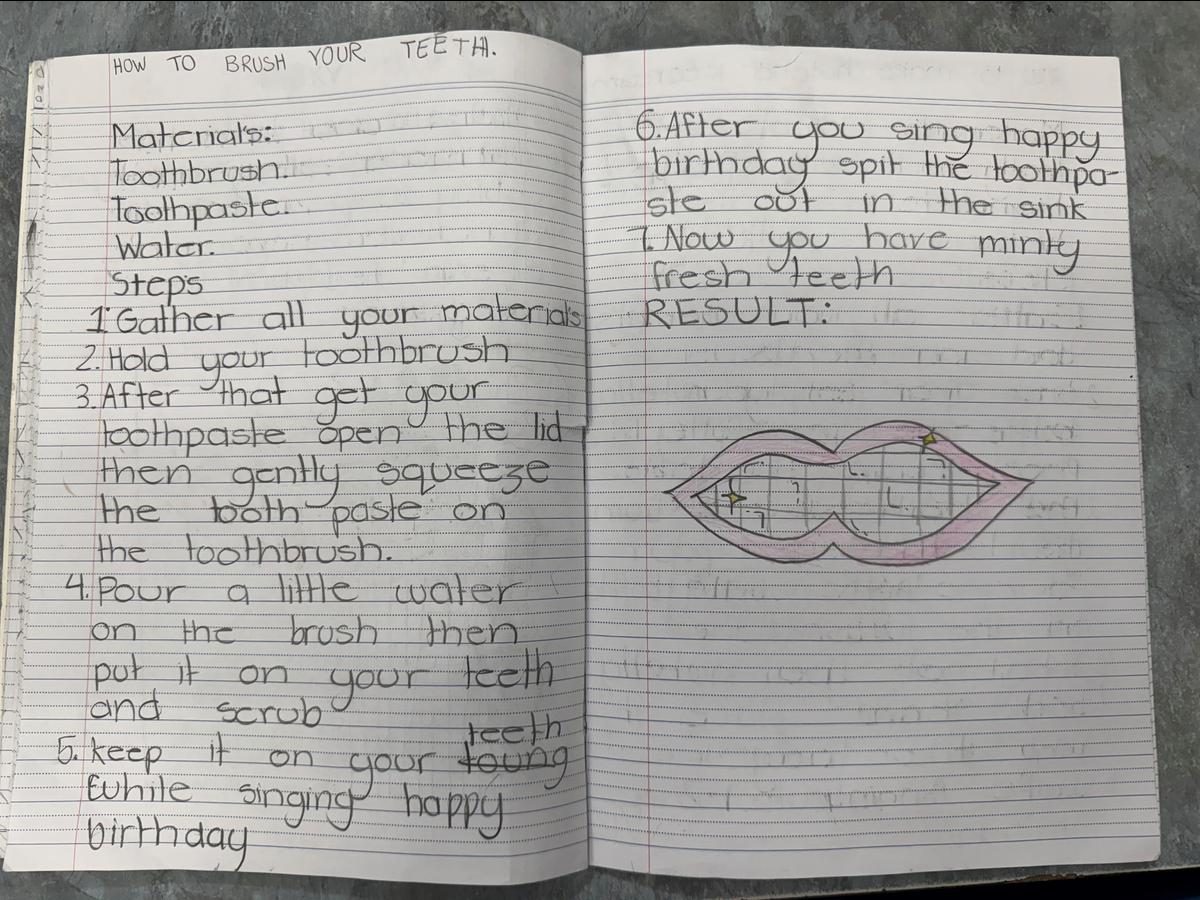 HOW TO BRUSH YOUR TEETH.
Material's:
Toothbrush.
Toothpaste.
Water.
Step's
1.Gather all your materials
2.Hold your toothbrush
3.After that get your
toothpaste open the lid
then gently squeeze
the tooth paste on
the toothbrush.
4.Pour a little water
on the brush then
put it on your teeth
and scrub
teeth
5.keep it on your toung
while singing happy
birthday
6.After you sing happy
birthday spit the toothpa-
ste out in the sink
7.Now you have minty
fresh teeth
RESULT: